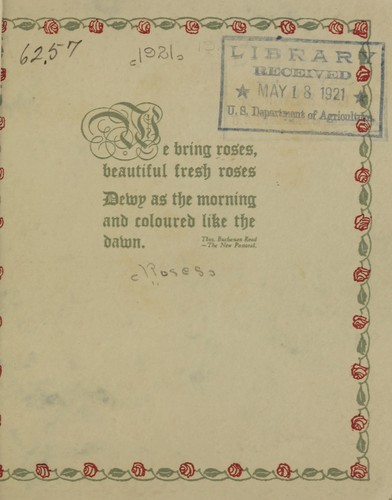 62.57
c1921ɔ
LIBRARY
RECEIVED
★ MAY 18 1921 ★
U. S. Department of Agriculture
We bring roses,
beautiful fresh roses
Dewy as the morning
and coloured like the
dawn.
Thos. Buchanan Read
—The New Pastoral.
cRosesɔ